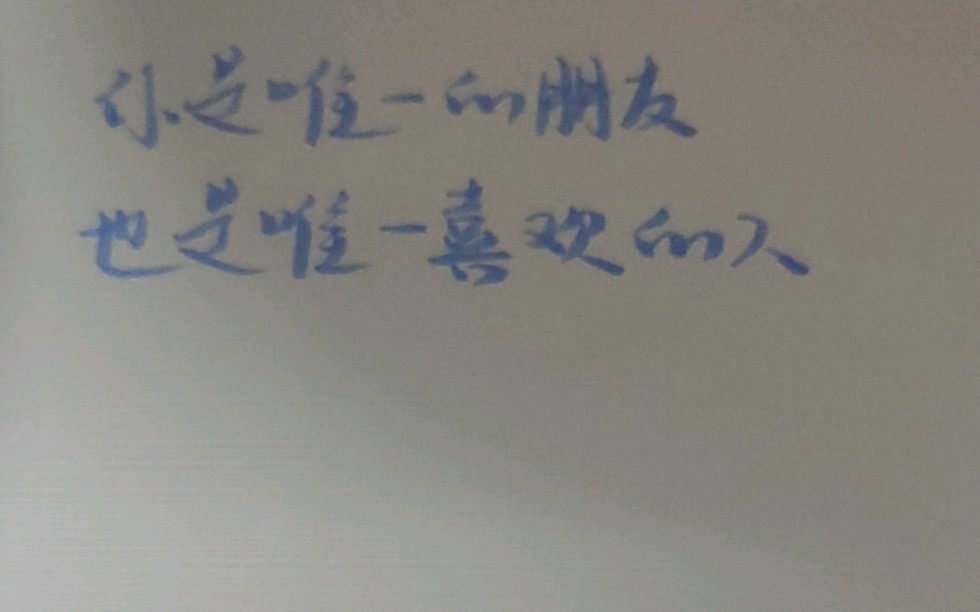 你是唯一的朋友
也是唯一喜欢的人